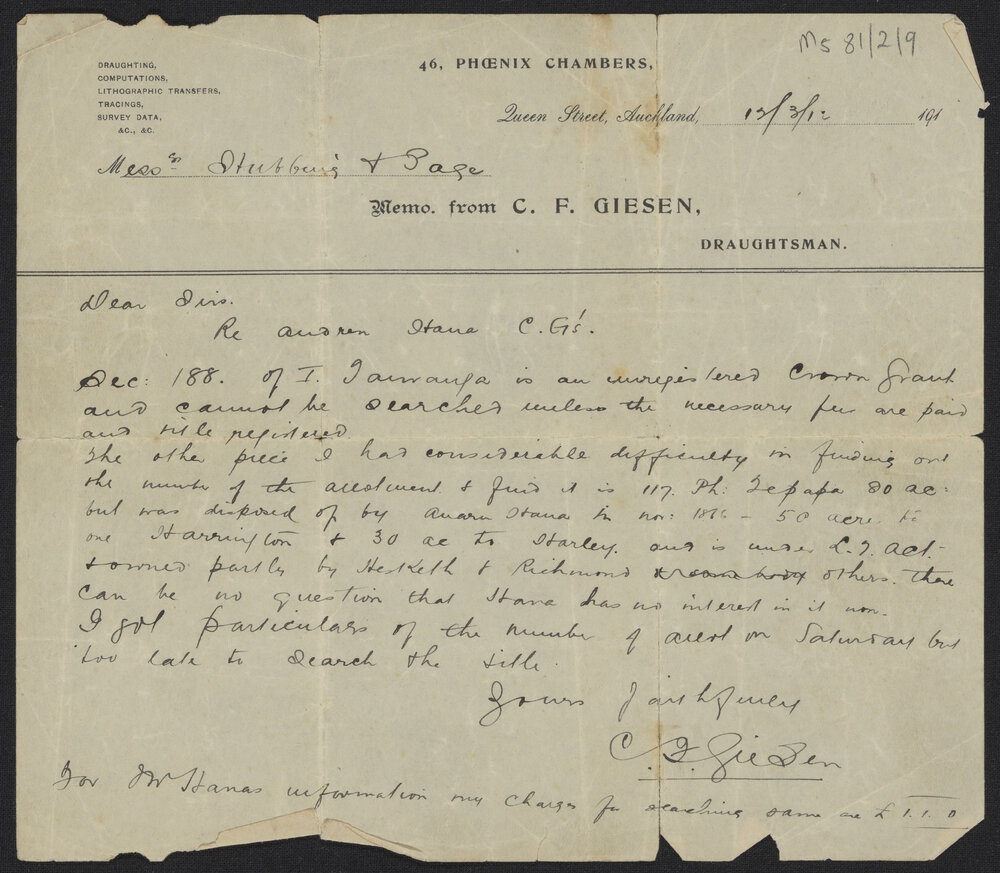 Ms 81/2/9
DRAUGHTING,
COMPUTATIONS,
LITHOGRAPHIC TRANSFERS,
TRACINGS,
SURVEY DATA,
&C., &C.
46, PHŒNIX CHAMBERS,
Queen Street, Auckland, 13/3/12 191
Messrs Stubbing & Page
Memo. from C. F. GIESEN,
DRAUGHTSMAN.
Dear Sirs.
Re Hana C. Gs'.
Sec: 188. of T. Tauranga is an unregistered Crown Grant
and cannot be searched unless the necessary fees are paid
and title registered
The other piece I had considerable difficulty in finding out
the number of the allotment & find it is 117. Ph: Tepapa 80 ac:
but was disposed of by Hana in nov: – 50 acres to
one Harrington & 30 ac to Harley. and is under L.T. Act.
& owned partly by Hesketh & Richmond & some body others. There
can be no question that Hana has no interest in it now.
I got particulars of the number of allot on Saturday but
too late to search the title.
Yours faithfully
C. F. Giesen
For Mr Hanas information my charges for searching same are £ 1. 1. 0